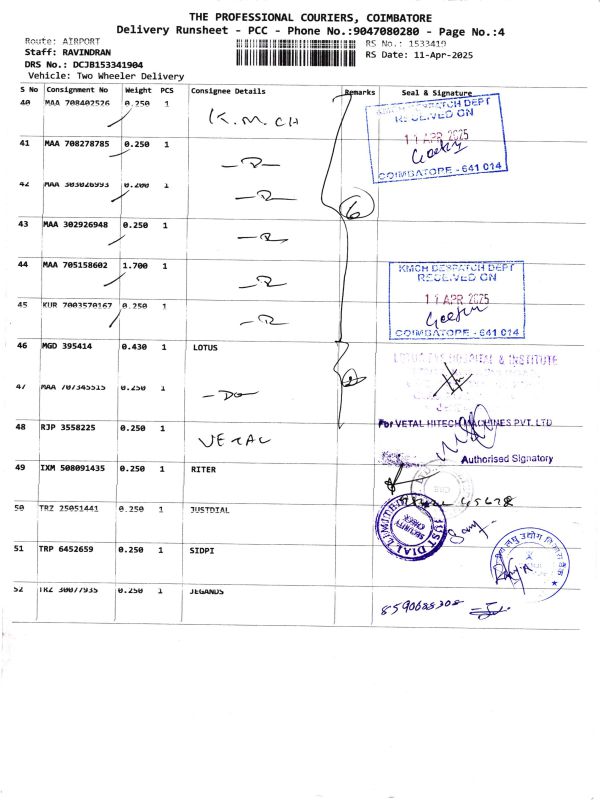 THE PROFESSIONAL COURIERS, COIMBATORE
Delivery Runsheet - PCC - Phone No.:9047080280 - Page No.:4
Route: AIRPORT RS No.: 1533419
Staff: RAVINDRAN RS Date: 11-Apr-2025
DRS No.: DCJB153341904
Vehicle: Two Wheeler Delivery
S No Consignment No Weight PCS Consignee Details Remarks Seal & Signature
40 MAA 708402526 0.250 1 K.M.CH
KMCH DESPATCH DEPT
RECEIVED ON
11 APR 2025
COIMBATORE - 641 014
41 MAA 708278785 0.250 1
42 MAA 303026993 0.200 1
6
43 MAA 302926948 0.250 1
44 MAA 705158602 1.700 1
KMCH DESPATCH DEPT
RECEIVED ON
11 APR 2025
COIMBATORE - 641 014
45 KUR 7003570167 0.250 1
46 MGD 395414 0.430 1 LOTUS
LOTUS EYE HOSPITAL & INSTITUTE
47 MAA 707345515 0.250 1 -Do-
2
48 RJP 3558225 0.250 1 VETAL
For VETAL HITECH MACHINES PVT. LTD
Authorised Signatory
49 IXM 508091435 0.250 1 RITER
50 TRZ 25051441 0.250 1 JUSTDIAL
JUST DIAL LIMITED
SECURITY CHECK
51 TRP 6452659 0.250 1 SIDPI
52 TRZ 30077935 0.250 1 JEGANDS